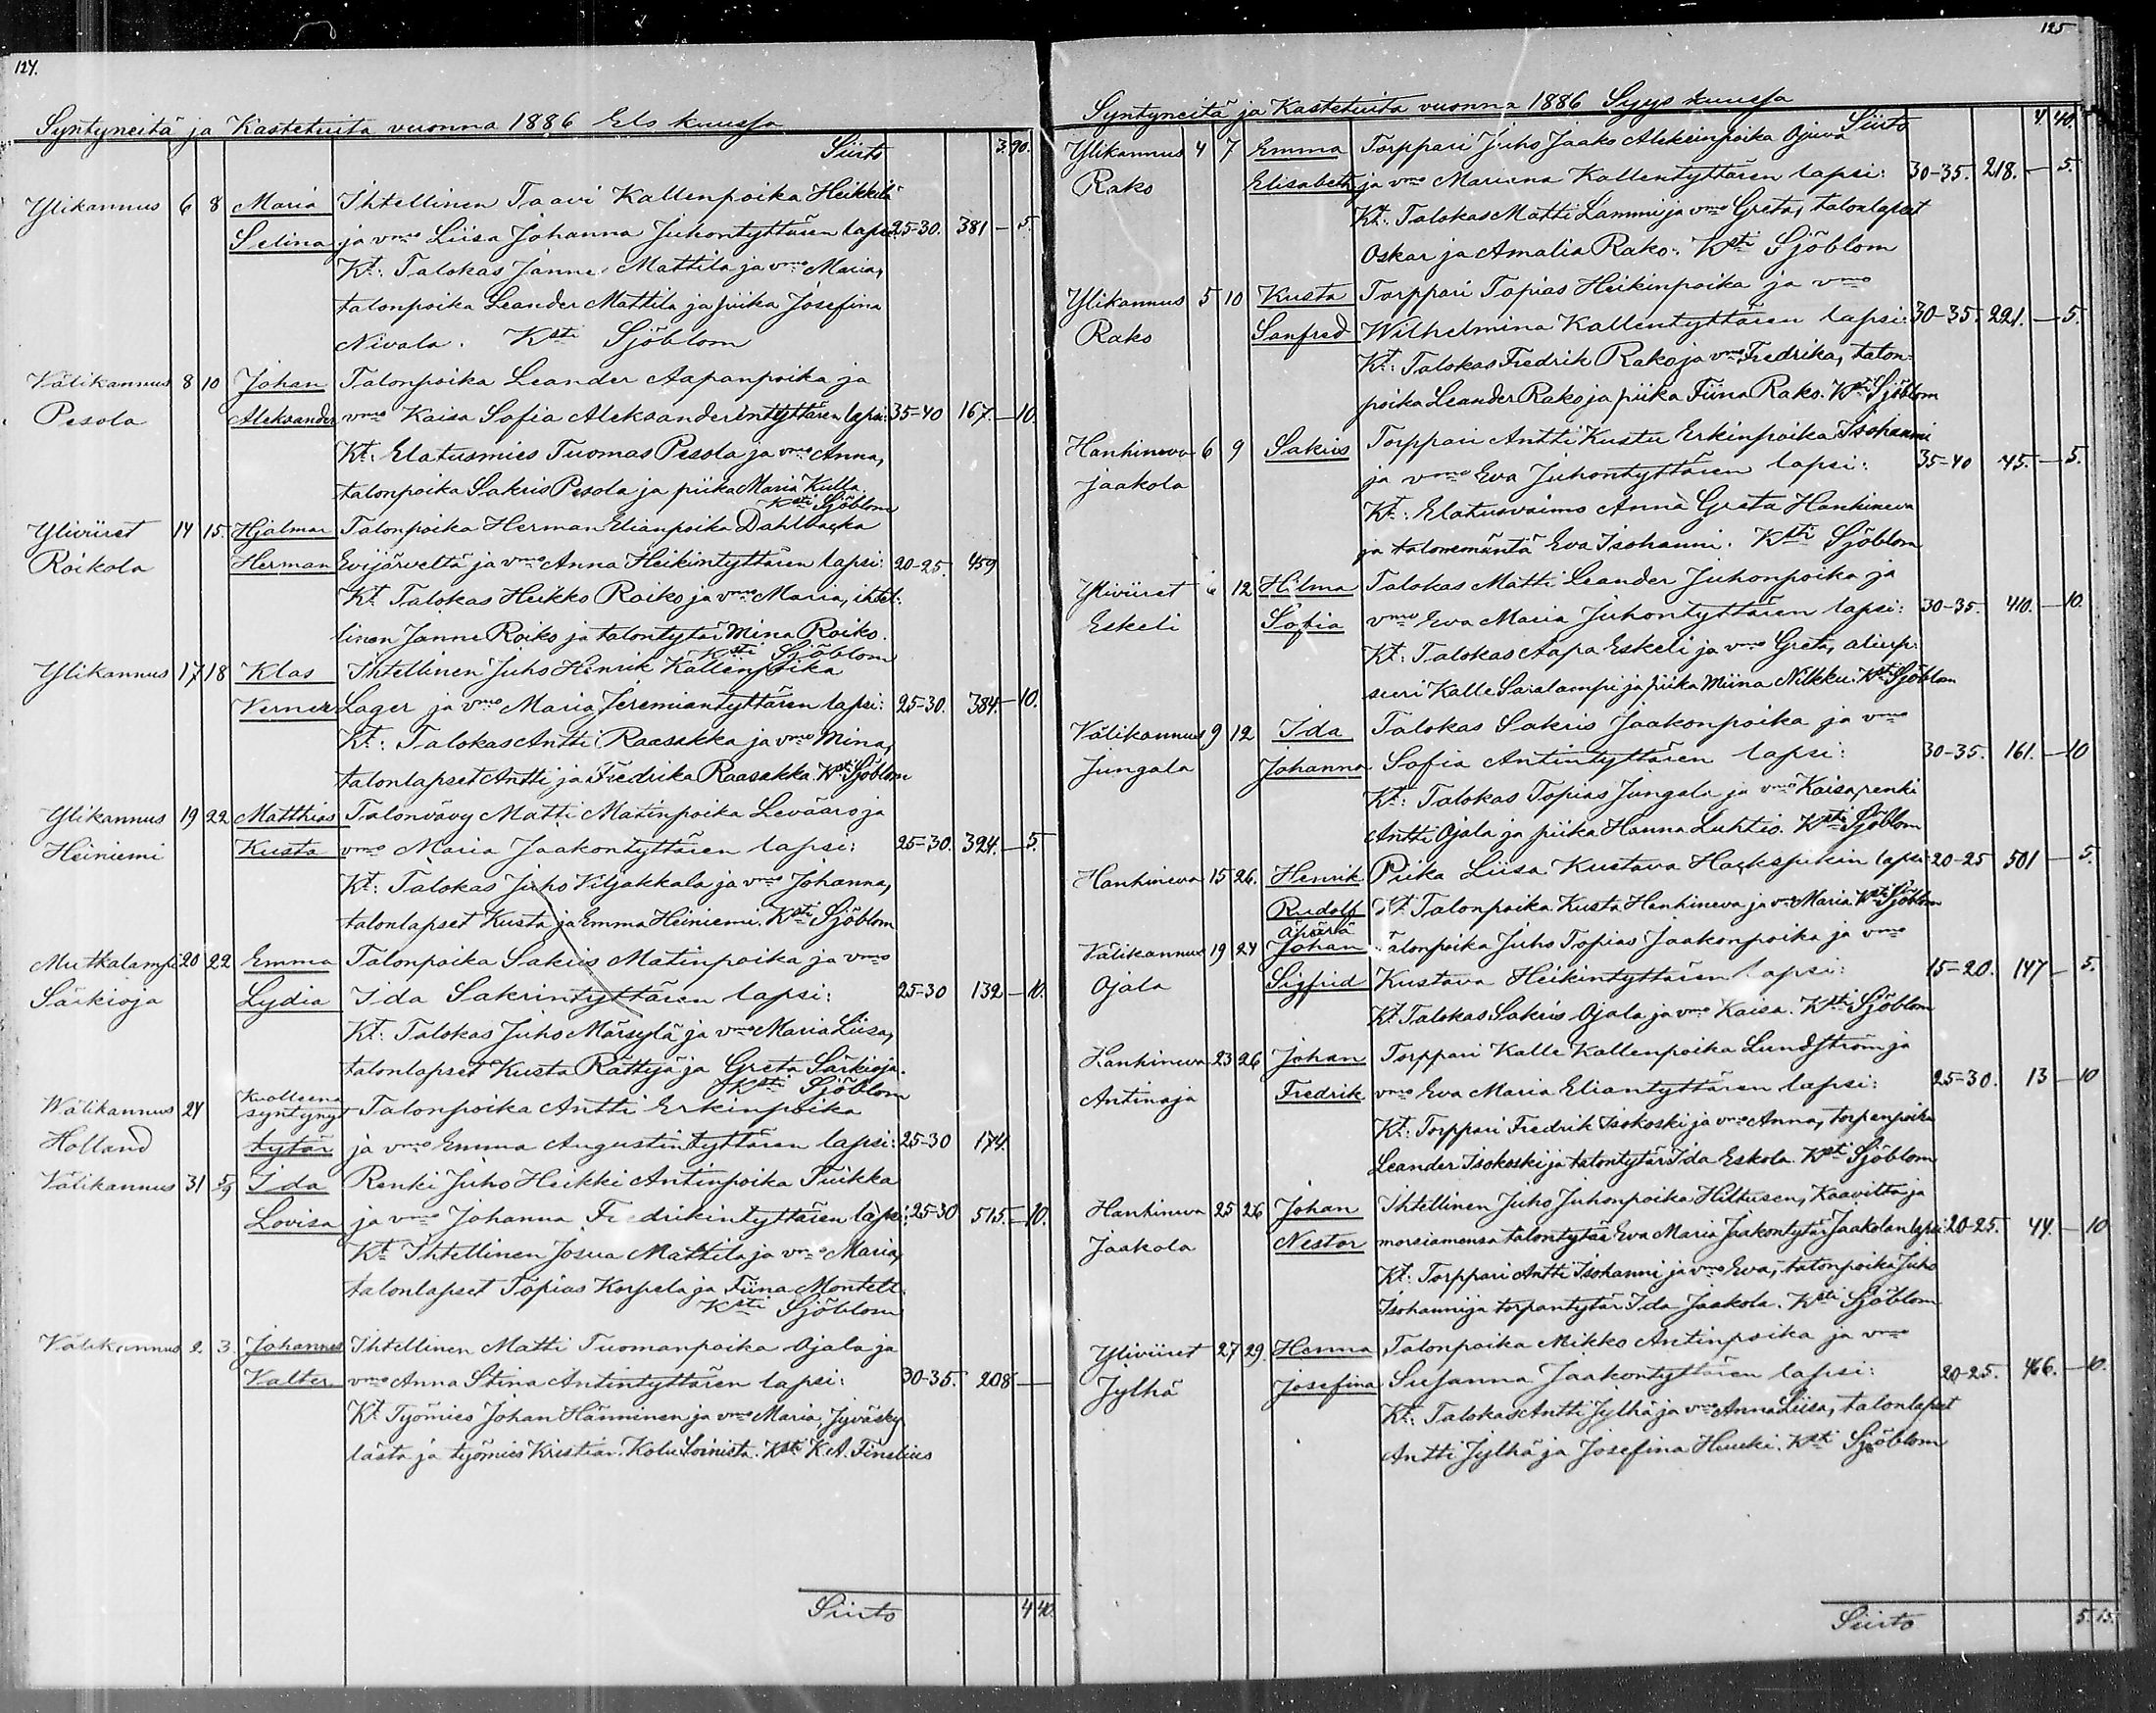 124.
Syntyneitä ja Kastetuita vuonna 1886 Elo kuussa
Siirto 3.90.
Ylikannus 6 8 Maria Ihtellinen Taavi Kallenpoika Heikkilä
Selina ja vmo Liisa Johanna Juhontyttären lapsi: 25-30. 381 — 5.
Kt: Talokas Janne Mattila ja vmo Maria,
talonpoika Leander Mattila ja piika Josefina
Nivala. Ksti Sjöblom
Välikannus 8 10 Johan Talonpoika Leander Aapanpoika ja
Pesola Aleksander vmo Kaisa Sofia Aleksanderintyttären lapsi: 35-40 167. — 10.
Kt. Elatusmies Tuomas Pesola ja vmo Anna,
talonpoika Sakris Pesola ja piika Maria Kulla.
Ksti Sjöblom
Yliviiret 14 15. Hjalmar Talonpoika Herman Elianpoika Dahlbacka
Roikola Herman Evijärveltä ja vmo Anna Heikintyttären lapsi: 20-25. 459
Kt Talokas Heikko Roiko ja vmo Maria, ihtel-
linen Janne Roiko ja talontytär Mina Roiko.
Ksti Sjöblom
Ylikannus 17 18 Klas Ihtellinen Juho Henrik Kallenpoika
Verner Lager ja vmo Maria Jeremiantyttären lapsi: 25-30. 384. — 10.
Kt: Talokas Antti Raasakka ja vmo Mina,
talonlapset Antti ja Fredrika Raasakka. Ksti Sjöblom
Ylikannus 19 22 Matthias Talonvävy Matti Matinpoika Leväaro ja
Heiniemi Kusta vmo Maria Jaakontyttären lapsi: 25-30. 394. — 5.
Kt: Talokas Juho Viljakkala ja vmo Johanna,
talonlapset Kusta ja Emma Heiniemi. Ksti Sjöblom
Mutkalampi 20 22 Emma Talonpoika Sakris Matinpoika ja vmo
Särkioja Lydia Ida Sakrintyttären lapsi: 25-30 132 — 10.
Kt: Talokas Juho Märsylä ja vmo Maria Liisa,
talonlapset Kusta Rättyä ja Greta Särkioja.
Ksti Sjöblom
Wälikannus 24 Kuolleena syntynyt Talonpoika Antti Erkinpoika
Holland tytär ja vmo Emma Augustintyttären lapsi: 25-30 174.
Välikannus 31 5/9 Ida Renki Juho Heikki Antinpoika Tuikka
Lovisa ja vmo Johanna Fredrikintyttären lapsi: 25-30 515. — 10.
Kt Ihtellinen Josua Mattila ja vmo Maria,
talonlapset Topias Korpela ja Fiina Montell.
Ksti Sjöblom
Välikannus 2. 3. Johannes Ihtellinen Matti Tuomanpoika Ojala ja
Valter vmo Anna Stina Antintyttären lapsi: 30-35. 208 —
Kt. Työmies Johan Hänninen ja vmo Maria Jyväsky
lästä ja työmies Kristian Ksti K. A.
Siirto 4 40.
125
Syntyneitä ja Kastetuita vuonna 1886 Syys kuussa
Siirto 4. 40.
Ylikannus 4 7 Emma Torppari Juho Jaako Aleksinpoika Ojuva
Rako Elisabeth ja vmo Mariana Kallentyttären lapsi: 30-35. 218. — 5.
Kt. Talokas Matti Lammi ja vmo Greta, talonlapset
Oskar ja Amalia Rako. Ksti Sjöblom
Ylikannus 5 10 Kusta Torppari Topias Heikinpoika ja vmo
Rako Sanfred Wilhelmina Kallentyttären lapsi: 30-35. 221. — 5.
Kt: Talokas Fredrik Rako ja vmo Fredrika, talon-
poika Leander Rako ja piika Fiina Rako. Ksti Sjöblom
Hanhineva 6 9 Sakris Torppari Antti Kustu Erkinpoika Isohanni
Jaakola ja vmo Eva Juhontyttären lapsi: 35-40 45. — 5.
Kt: Elatusvaimo Anna Greta Hanhineva
ja talonemäntä Eva Isohanni. Ksti Sjöblom
Yliviiret 6 12 Hilma Talokas Matti Leander Juhonpoika ja
Eskeli Sofia vmo Eva Maria Juhontyttären lapsi: 30-35. 410. — 10.
Kt: Talokas Aapa Eskeli ja vmo Greta, aliup-
seeri Kalle Saralampi ja piika Miina Nikku. Ksti Sjöblom
Välikannus 9 12 Ida Talokas Sakris Jaakonpoika ja vmo
Jungala Johanna Sofia Antintyttären lapsi: 30-35. 161. — 10
Kt: Talokas Topias Jungala ja vmo Kaisa, renki
Antti Ojala ja piika Hanna Luhtio. Ksti Sjöblom
Hanhineva 15 26. Henrik Piika Liisa Kustava lapsi 20-25 501 — 5.
Rudolf Kt. Talonpoika Kusta Hanhineva ja vmo Maria. Ksti Sjöblom
äpärä
Välikannus 19 24 Johan Talonpoika Juho Topias Jaakonpoika ja vmo
Ojala Sigfrid Kustava Heikintyttären lapsi: 15-20. 147 — 5.
Kt. Talokas Sakris Ojala ja vmo Kaisa. Ksti Sjöblom
Hanhineva 23 26 Johan Torppari Kalle Kallenpoika Lundström ja
Antinoja Fredrik vmo Eva Maria Eliantyttären lapsi: 25-30. 13 — 10
Kt: Torppari Fredrik Isokoski ja vmo Anna, torpanpoika
Leander Isokoski ja talontytär Ida Eskola. Ksti Sjöblom
Hanhineva 25 26 Johan Ihtellinen Juho Juhonpoika Hiltusen, Kaavilta ja
Jaakola Nestor morsiamensa talontytär Eva Maria Jaakontytär Jaakolan lapsi: 20-25. 44. — 10
Kt: Torppari Antti Isohanni ja vmo Eva, talonpoika Juho
Isohanni ja torpantytär Ida Jaakola. Ksti Sjöblom
Yliviiret 27 29. Henna Talonpoika Mikko Antinpoika ja vmo
Jylhä Josefina Susanna Jaakontyttären lapsi: 20-25. 466. — 10.
Kt: Talokas Antti Jylhä ja vmo Anna Liisa, talonlapset
Antti Jylhä ja Josefina Huuki. Ksti Sjöblom
Siirto 5. 15.